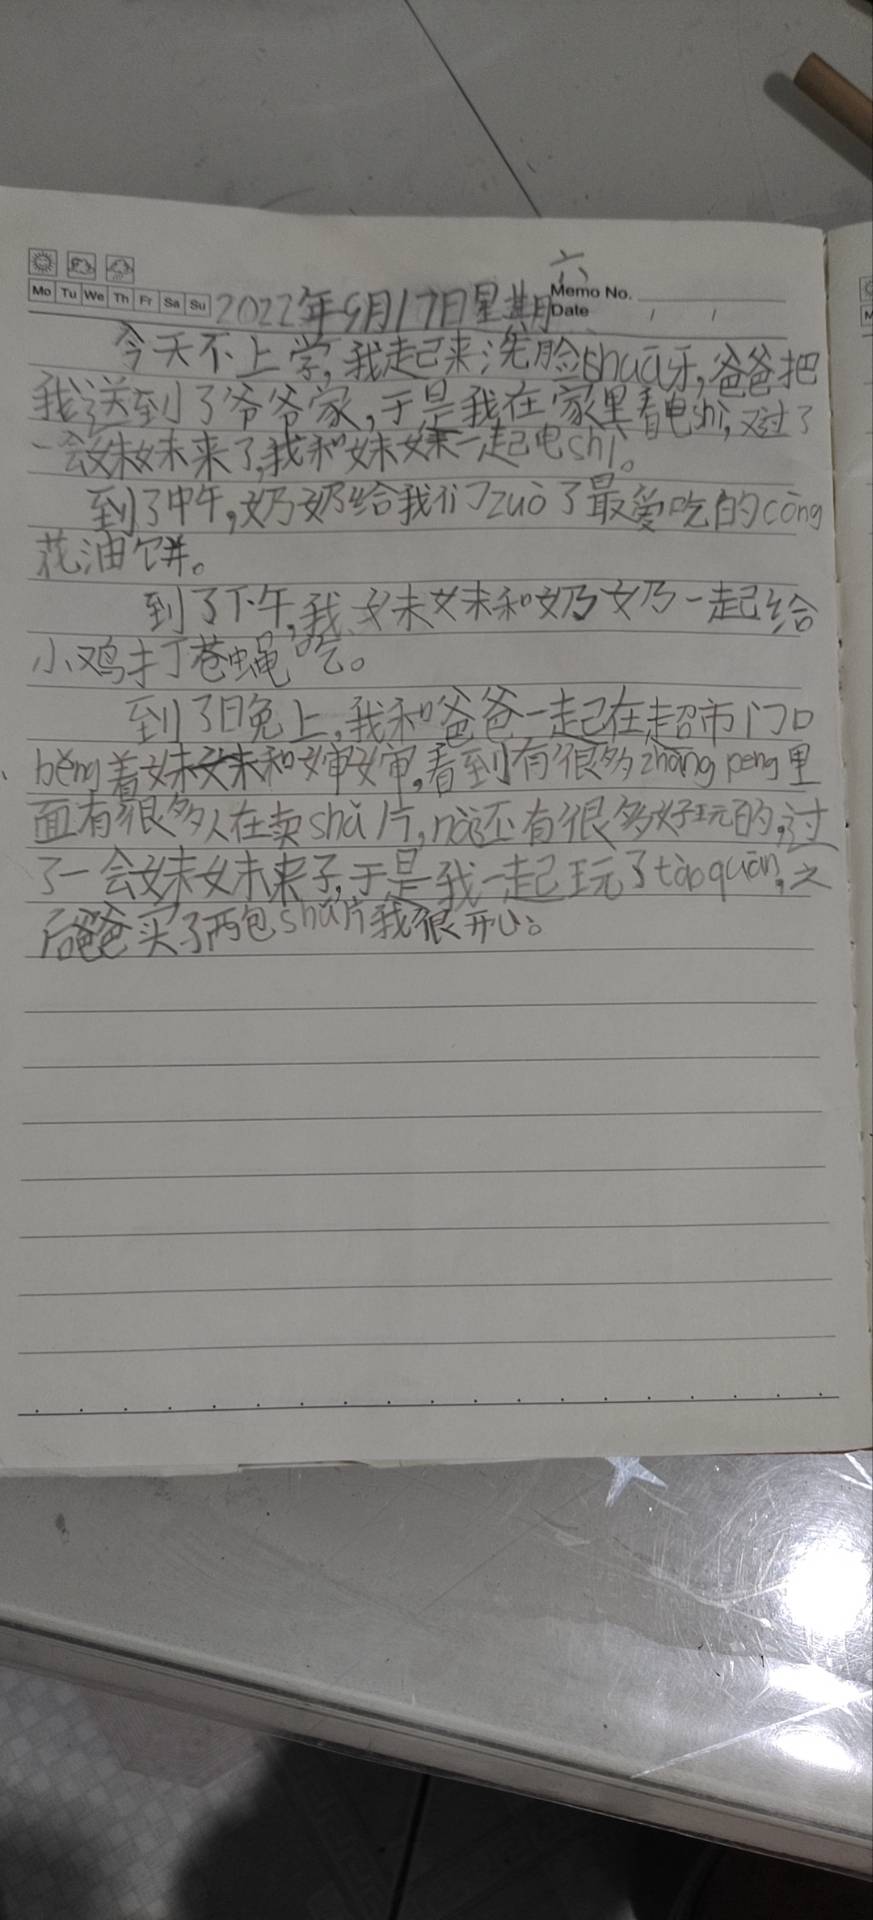 六
Mo Tu We Th Fr Sa Su
Memo No.
Date / /
2022年9月17日星期
今天不上学,我起来洗脸shuā牙,爸爸把
我送到了爷爷家,于是我在家里看电shì,又过了
一会妹妹来了,我和妹妹一起电shì。
到了中午,奶奶给我们zuò了最爱吃的cōng
花油饼。
到了下午,我妹妹和奶奶一起给
小鸡打苍蝇吃。
到了晚上,我和爸爸一起在超市门口
běng着妹妹和婶婶,看到有很多zhàng peng里
面有很多人在卖shǔ片,还有很多好玩的,过
了一会妹妹来了,于是我一起玩了tàoquān,之
后爸爸买了两包shǔ片我很开心。